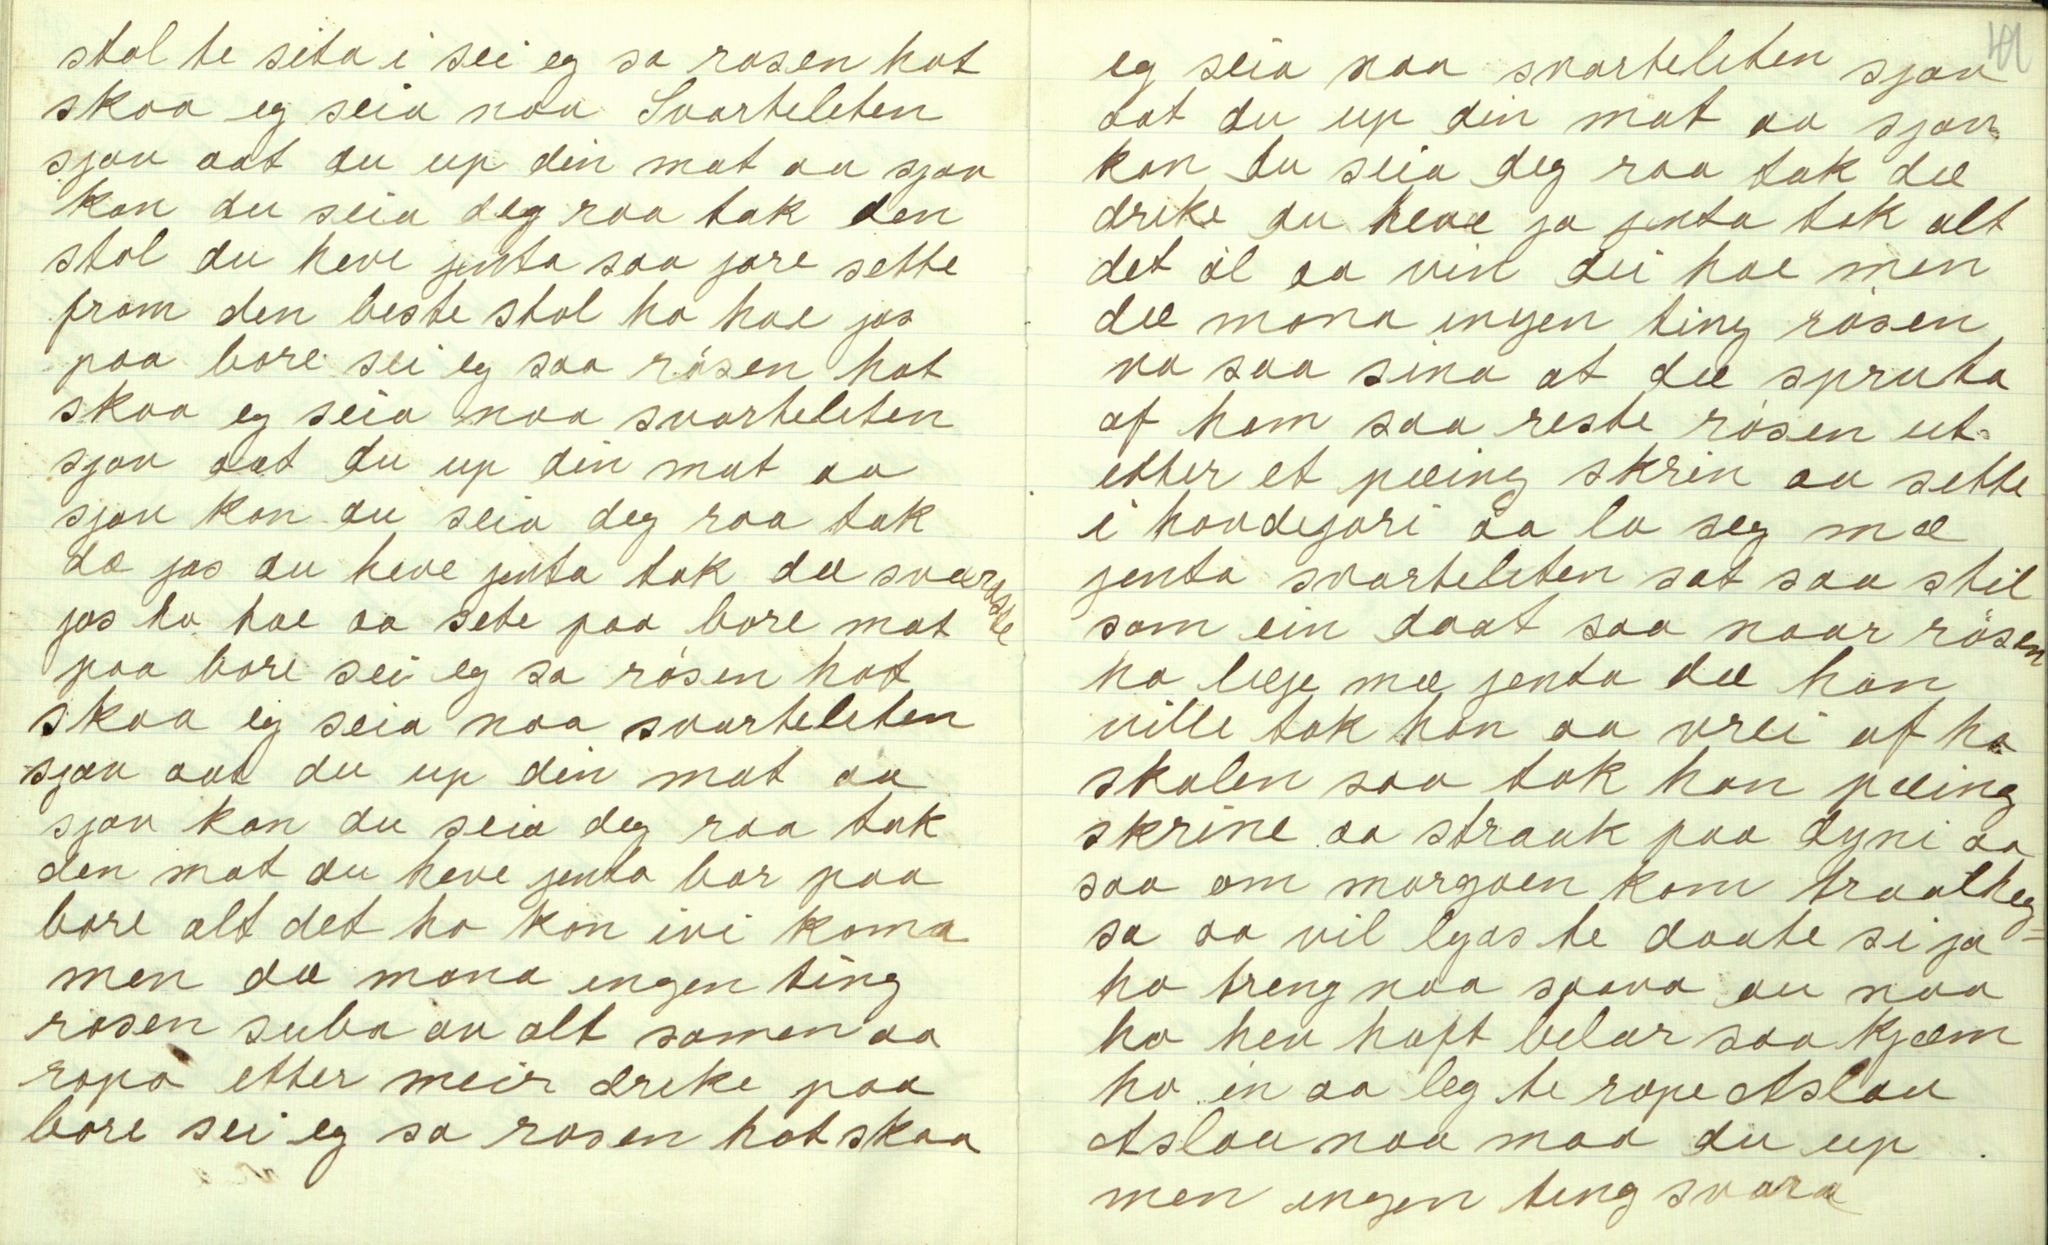 stol te sita i sei eg sa rosen hot
skaa eg seia naa Svarteleten
sjau aat du up din mat aa sjau
kan du seia deg raa tak den
stol du heve jenta saa jore sette
fram den beste stol ho hae jos
paa bore sei eg saa rösen hot
skaa eg seia naa svarteleten
sjau aat du up din mat aa
sjau kan du seia deg raa tak
dæ jos du heve jenta tok dæ sværaste
jos ho hae aa sete paa bore mat
paa bore sei eg sa rösen hot
skaa eg seia naa svarteleten
sjau aat du up din mat aa
sjau kan du seia deg raa tak
den mat du heve jenta bar paa
bore alt det ho kon ivi koma
men dæ mona ingen ting
rosen suba au alt samen aa
ropa etter meir dreke paa
bore sei eg sa rosen hot skaa
41
eg seia naa svarteleten sjau
aat du up din mat aa sjau
kan du seia deg raa tak dæ
dreke du heve ja jenta tok alt
det öl aa vin dei hae men
dæ mona ingen ting rösen
va saa sina at dæ spruta
af ham saa reste rösen ut
etter et pæing skrin aa sette
i hovdejari aa la seg mæ
jenta svarteleten sat saa stil
som ein daat saa naar rösen
ha læje mæ jenta dæ han
ville tok han aa vrei af ho
skolen saa tok han pæing
skrine aa strauk paa dyni aa
saa om morgoen kom traalheg=
sa aa vil lyas te daate si ja
ho treng naa soava au naa
ho hev haft belar saa kjæm
ho in aa leg te rope Aslau
Aslau naa maa du up
men ingen ting svara